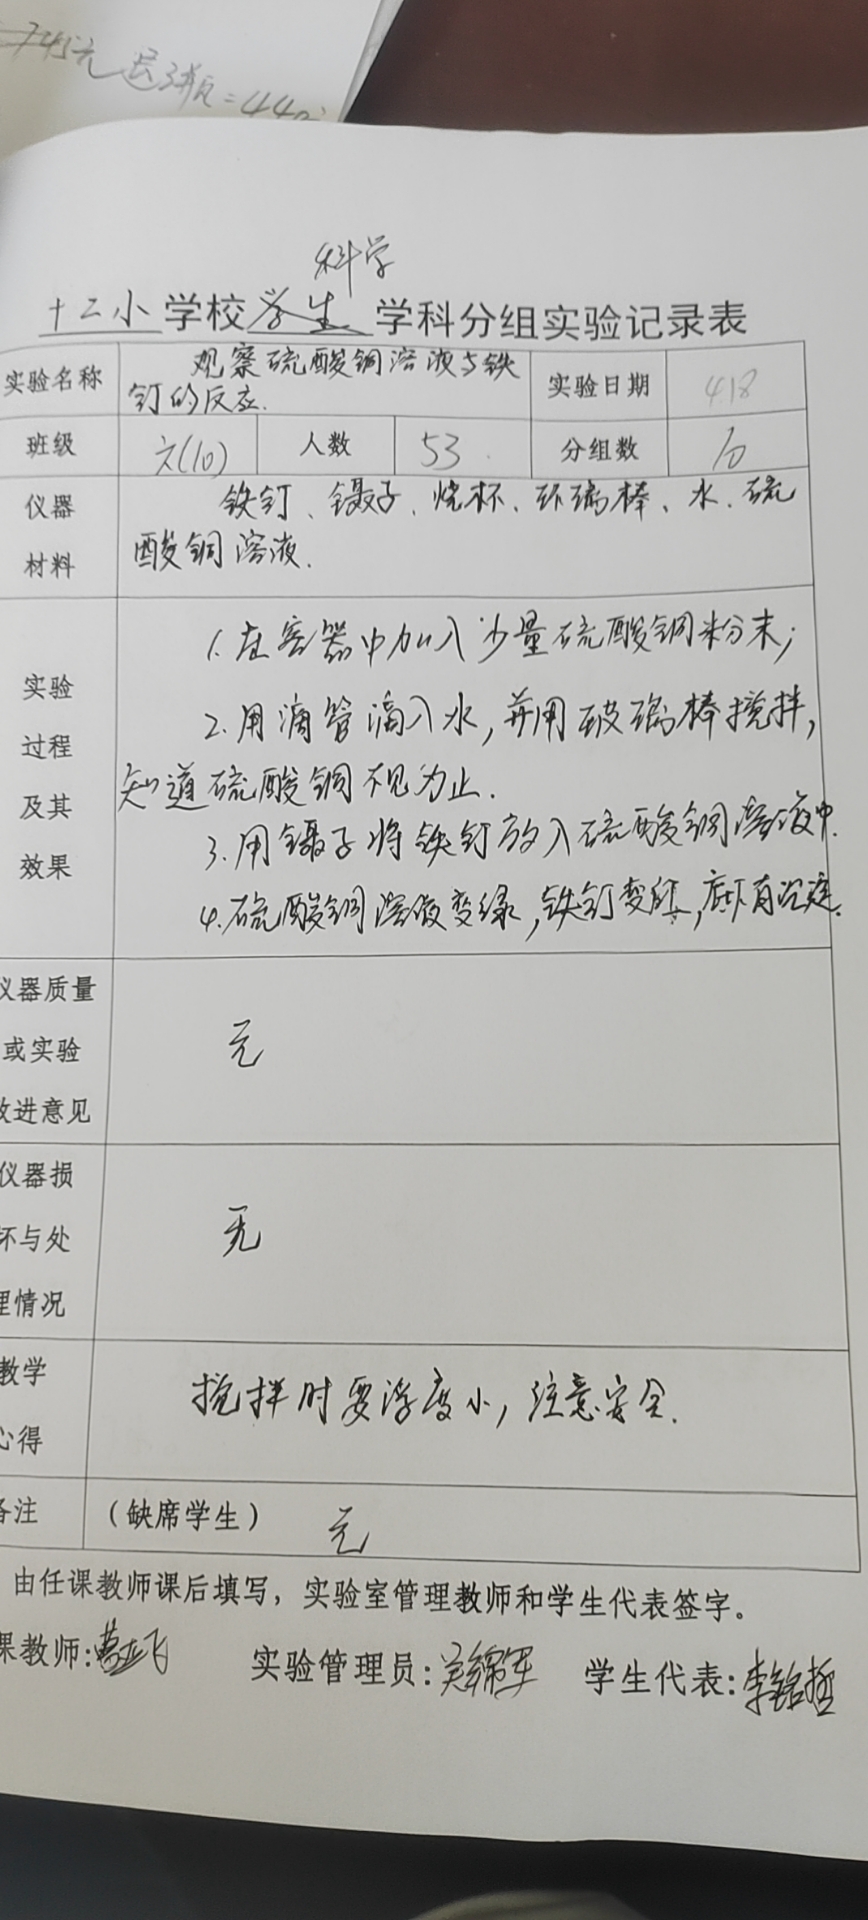 745元
=440
科学
十二小学校学生学科分组实验记录表
实验名称 观察硫酸铜溶液与铁钉的反应. 实验日期 4.18
班级 六(10) 人数 53 分组数 10
仪器材料 铁钉、镊子、烧杯、玻璃棒、水、硫
酸铜溶液.
实验过程及其效果
1.在容器中加入少量硫酸铜粉末;
2.用滴管滴入水,并用玻璃棒搅拌,
知道硫酸铜不见为止.
3.用镊子将铁钉放入硫酸铜溶液中.
4.硫酸铜溶液变绿,铁钉变红,底下有沉淀.
仪器质量
或实验
改进意见
无
仪器损
坏与处
理情况
无
教学
心得
搅拌时要浮度小,注意安全.
备注 (缺席学生) 无
由任课教师课后填写，实验室管理教师和学生代表签字。
课教师: 实验管理员:吴锦军 学生代表:李铭哲